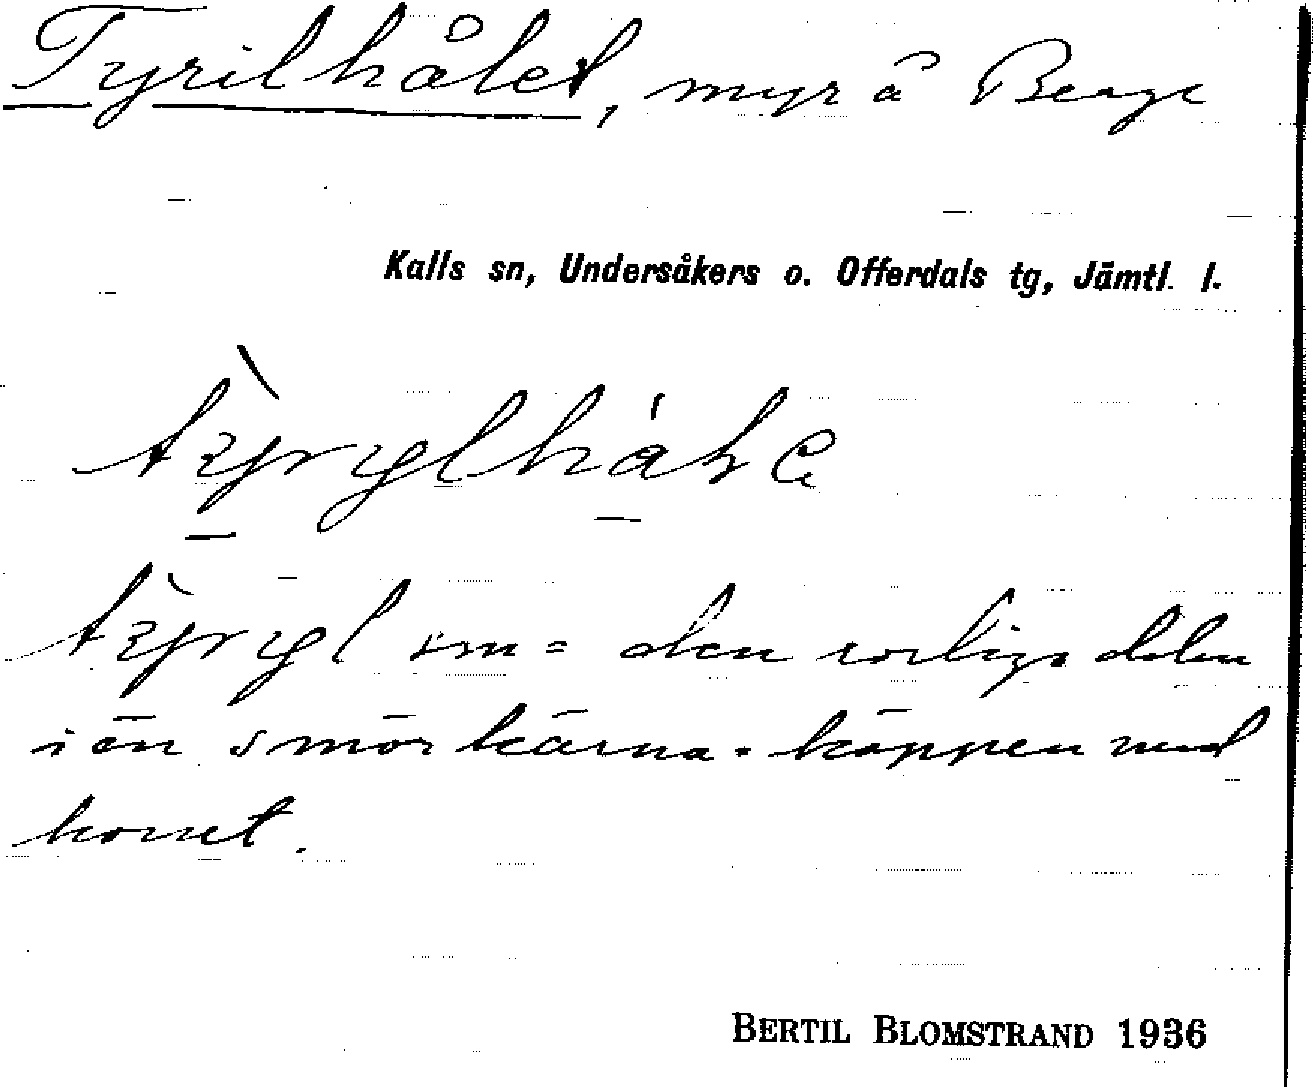 Tyrilhålet, myr å Berge
Kalls sn, Undersåkers o. Offerdals tg, Jämtl. l.
sm = den rörliga delen
i en smörkärna = käppen med
korset.
BERTIL BLOMSTRAND 1936